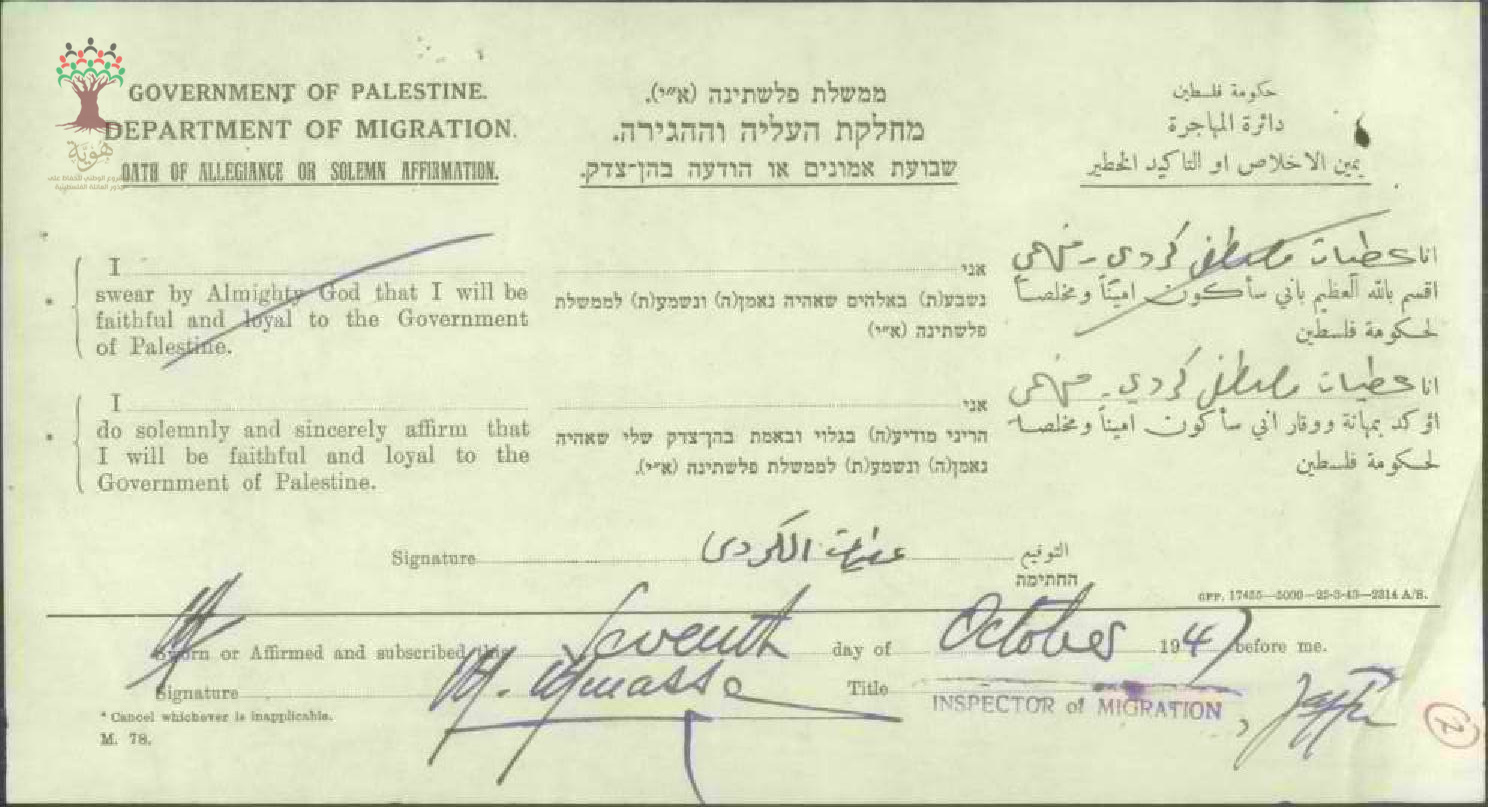 GOVERNMENT OF PALESTINE.
DEPARTMENT OF MIGRATION.
OATH OF ALLEGIANCE OR SOLEMN AFFIRMATION.
ממשלת פלשתינה (א״י).
מחלקת העליה וההגירה.
שבועת אמונים או הודעה בהן־צדק.
حكومة فلسطين
دائرة المهاجرة
يمين الاخلاص او التاكيد الخطير
هوية
I
* swear by Almighty God that I will be
faithful and loyal to the Government
of Palestine.
אני
נשבע(ת) באלהים שאהיה נאמן(ה) ונשמע(ת) לממשלת
פלשתינה (א״י)
انا عطيات مصطفى كردي
اقسم بالله العظيم باني سأكون اميناً ومخلصاً
لحكومة فلسطين
I
* do solemnly and sincerely affirm that
I will be faithful and loyal to the
Government of Palestine.
אני
הריני מודיע(ה) בגלוי ובאמת בהן־צדק שלי שאהיה
נאמן(ה) ונשמע(ת) לממשלת פלשתינה (א״י).
انا عطيات مصطفى كردي
اؤكد بمهانة ووقار اني سأكون اميناً ومخلصة
لحكومة فلسطين
Signature عطيات الكردى التوقيع
החתימה
GPP. 17455—5000—25-3-43—2314 A/S.
Sworn or Affirmed and subscribed this Seventh day of October 1947 before me.
Signature Title INSPECTOR of MIGRATION, Jaffa
* Cancel whichever is inapplicable.
M. 78.